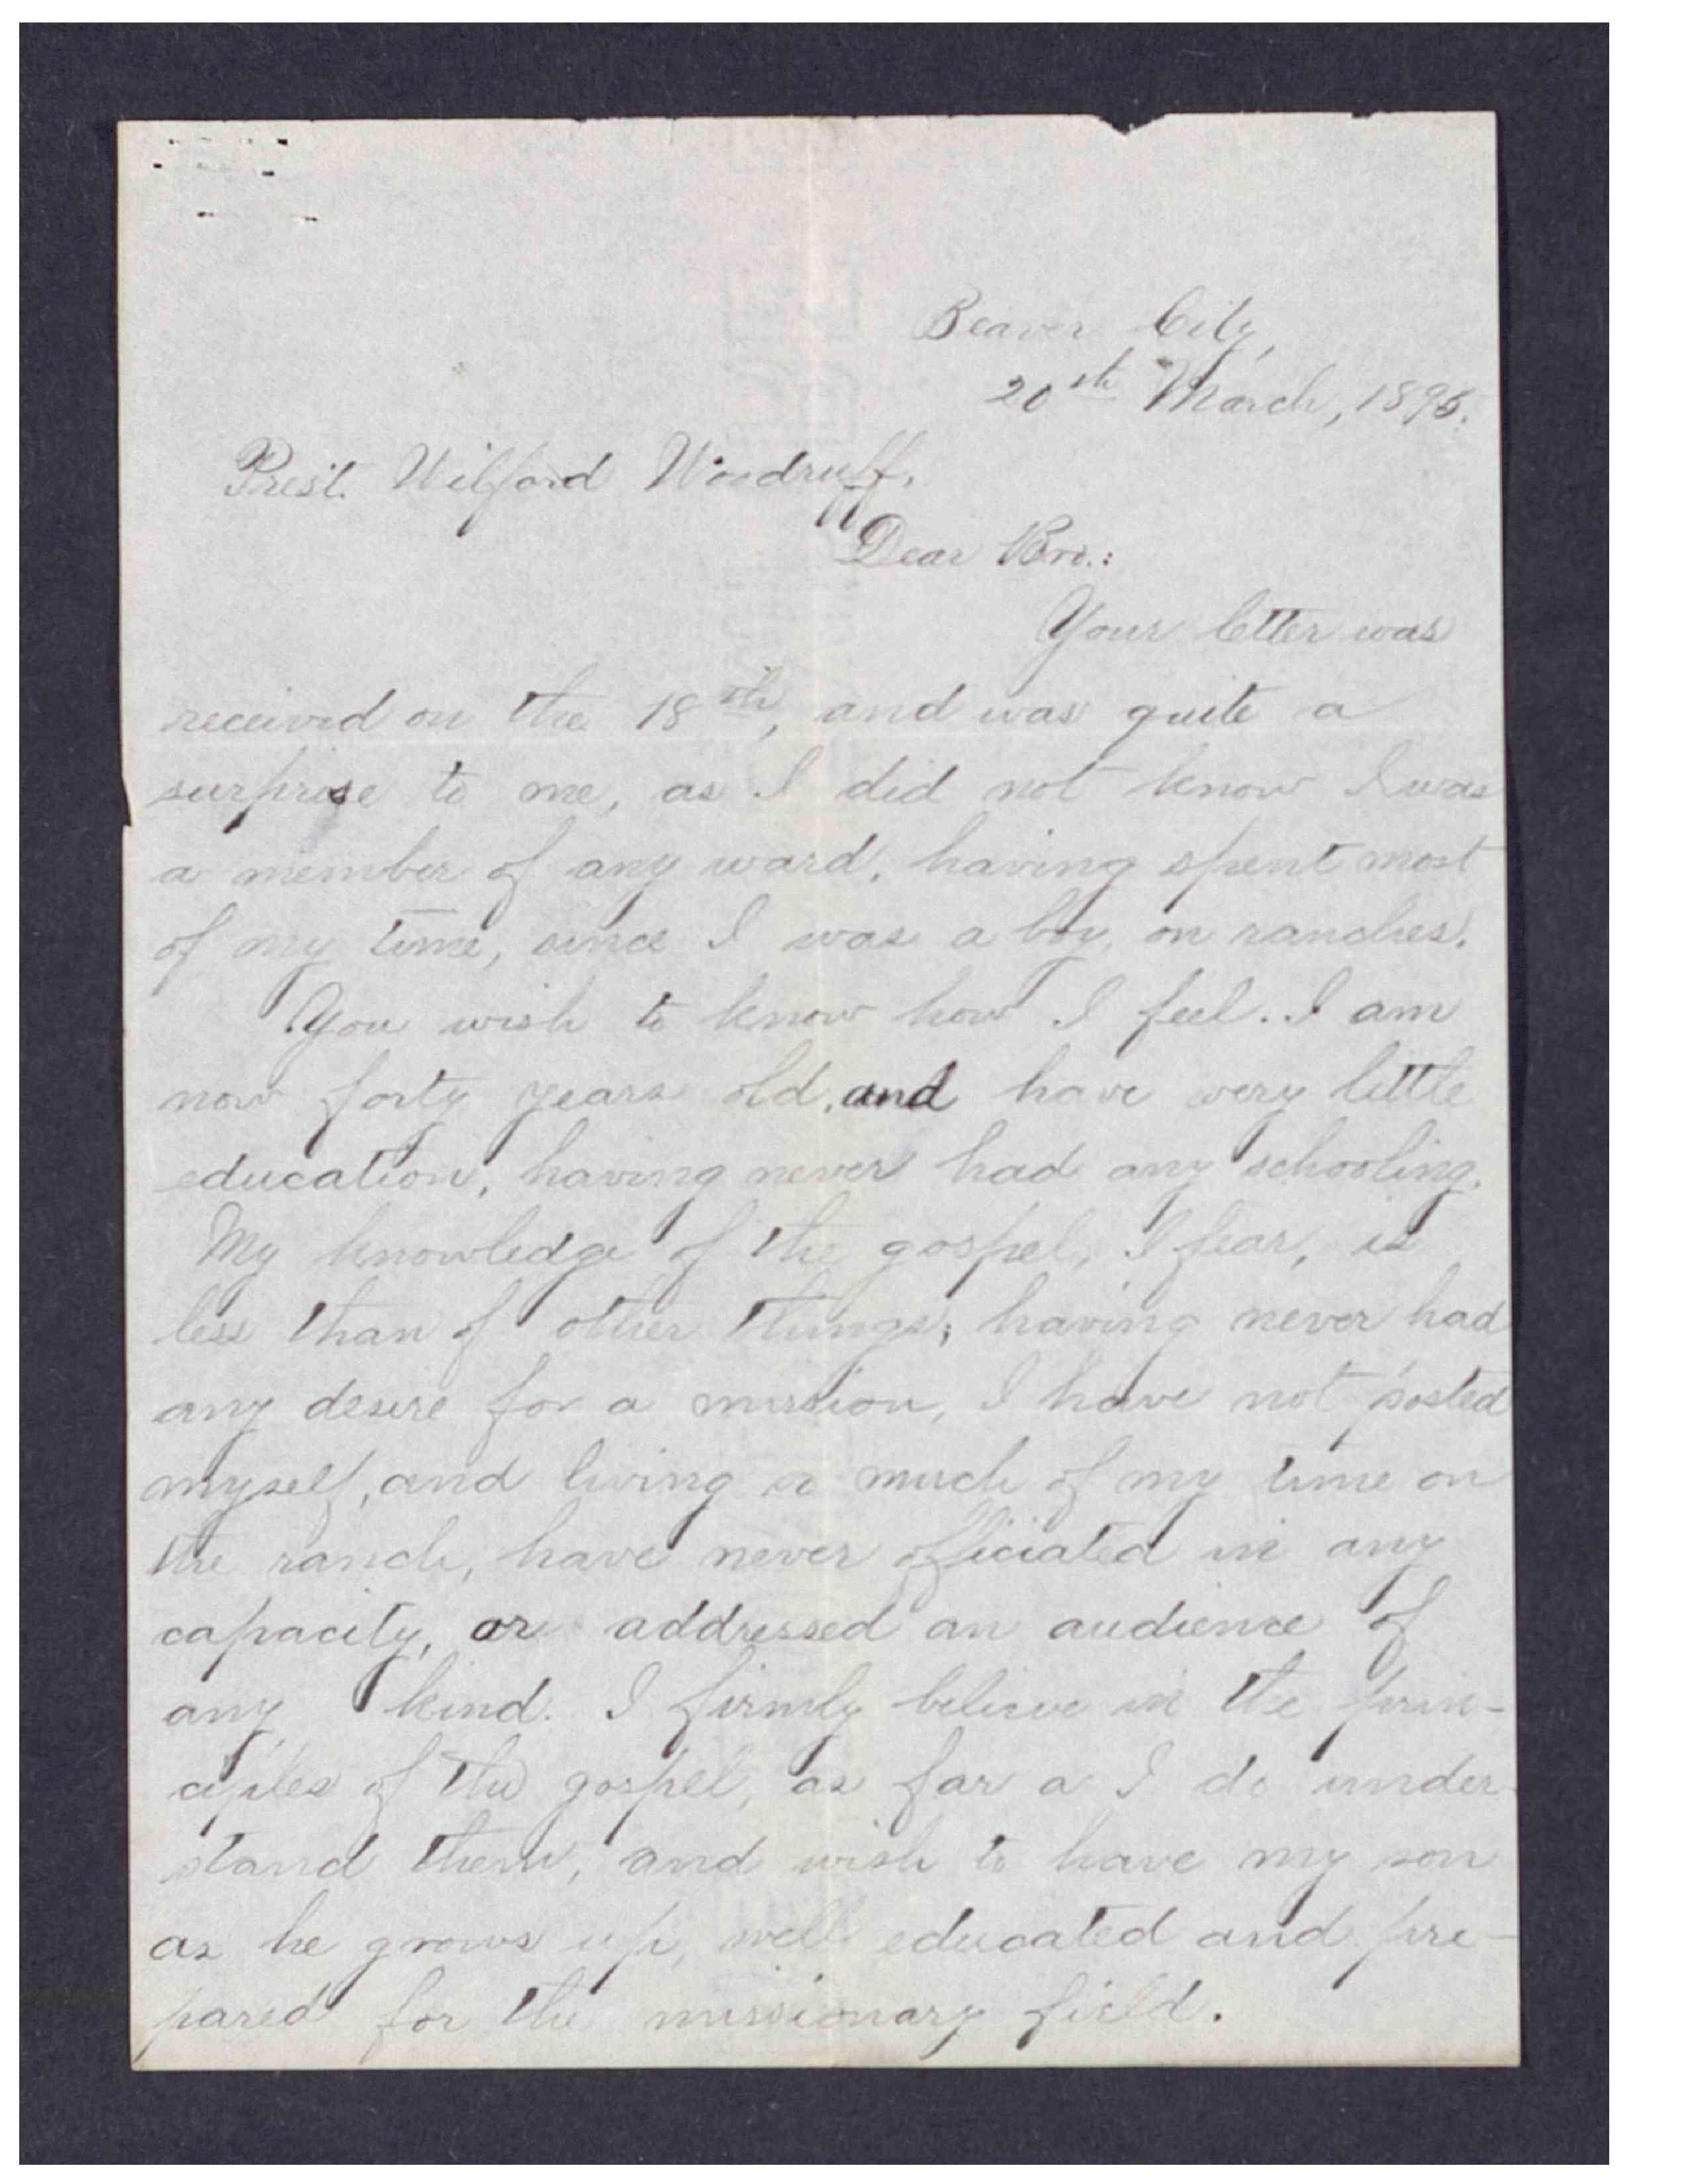 Beaver City,
20th March, 1895.
Prest. Wilford Woodruff,
Dear Bro.:
Your letter was
received on the 18th, and was quite a
surprise to me, as I did not know I was
a member of any ward, having spent most
of my time, since I was a boy, on ranches.
You wish to know how I feel. I am
now forty years old, and have very little
education, having never had any schooling.
My knowledge of the gospel, I fear, is
less than of other things; having never had
any desire for a mission, I have not posted
myself, and living so much of my time on
the ranch, have never officiated in any
capacity, or addressed an audience of
any kind. I firmly believe in the prin-
ciples of the gospel, as far a I do under-
stand them, and wish to have my son
as he grows up, well educated and pre-
pared for the missionary field.